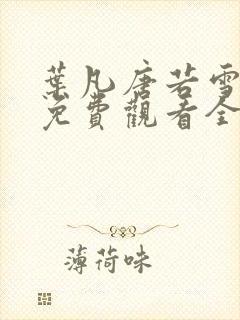 葉凡唐若雪
免費觀看全
薄荷味